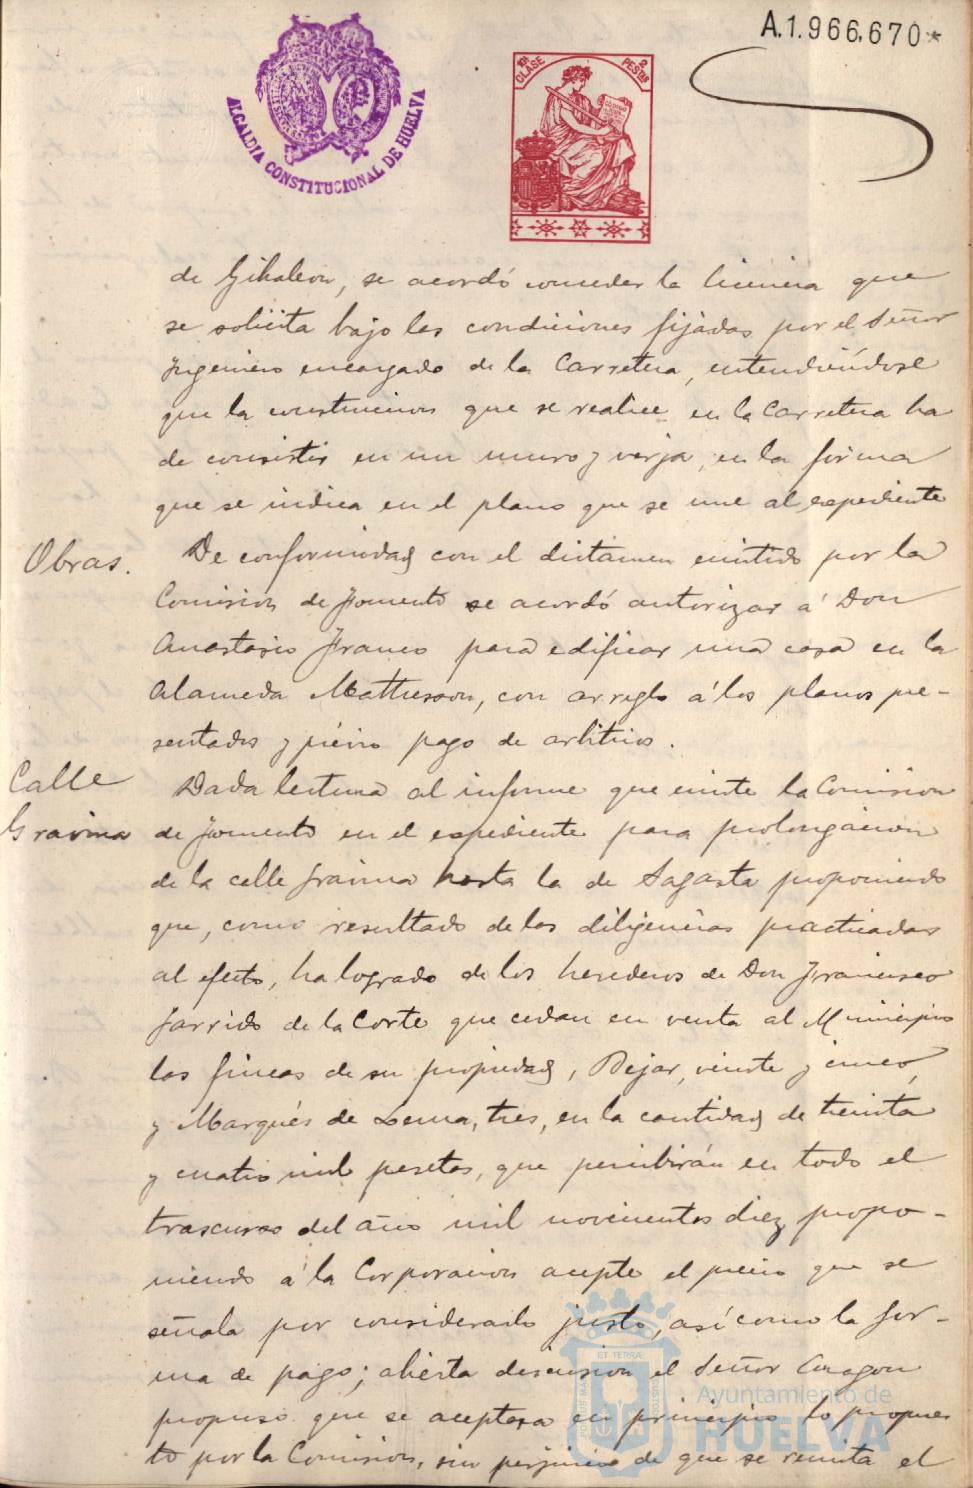 A.1.966.670*
ALCALDIA CONSTITUCIONAL DE HUELVA
10ª CLASE
2 PESTAS
de Gibraleon, se acordó conceder la licencia que
se solicita bajo las condiciones fijadas por el Señor
Ingeniero encargado de la Carretera, entendiéndose
que la construccion que se realice en la Carretera ha
de consistir en un muro y verja, en la forma
que se indica en el plano que se une al expediente
Obras.
De conformidad con el dictamen emitido por la
Comision de Fomento se acordó autorizar á Don
Anastasio Franco para edificar una casa en la
Alameda Mattheson, con arreglo á los planos pre-
sentados y prévio pago de arbitrios.
Calle
Gravina
Dada lectura al informe que emite la Comision
de Fomento en el expediente para prolongacion
de la calle Gravina hasta la de Sagasta proponiendo
que, como resultado de las diligencias practicadas
al efecto, ha logrado de los herederos de Don Francisco
Garrido de la Corte que cedan en venta al Municipio
las fincas de su propiedad, Bejar, veinte y cinco,
y Marqués de Lema, tres, en la cantidad de treinta
y cuatro mil pesetas, que percibirán en todo el
trascurso del año mil novecientos diez propo-
niendo á la Corporacion acepte el precio que se
señala por considerarlo justo, así como la for-
ma de pago; abierta discusion el Señor Aragon
propuso que se aceptara en principio lo propues
to por la Comision, sin perjuicio de que se remita el
Ayuntamiento de
HUELVA